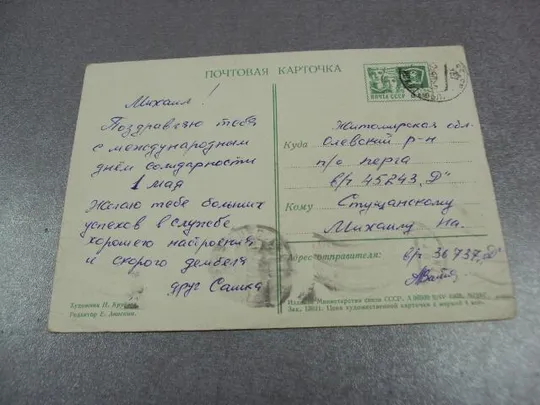 ПОЧТОВАЯ КАРТОЧКА
ПОЧТА СССР
Михаил!
Поздравляю тебя
с международным
днём солидарности
1 мая
Желаю тебе больших
успехов в службе
хорошего настроения
и скорого дембеля
друг Сашка
Житомирская обл.
Куда Олевский р-н
п/о перга
в/ч 45243 "Д"
Кому
Михаилу
Адрес отправителя: в/ч 36737
Художник Н.
Редактор Е.
Издание Министерства связи СССР.
Зак. Цена художественной карточки с маркой 4 коп.